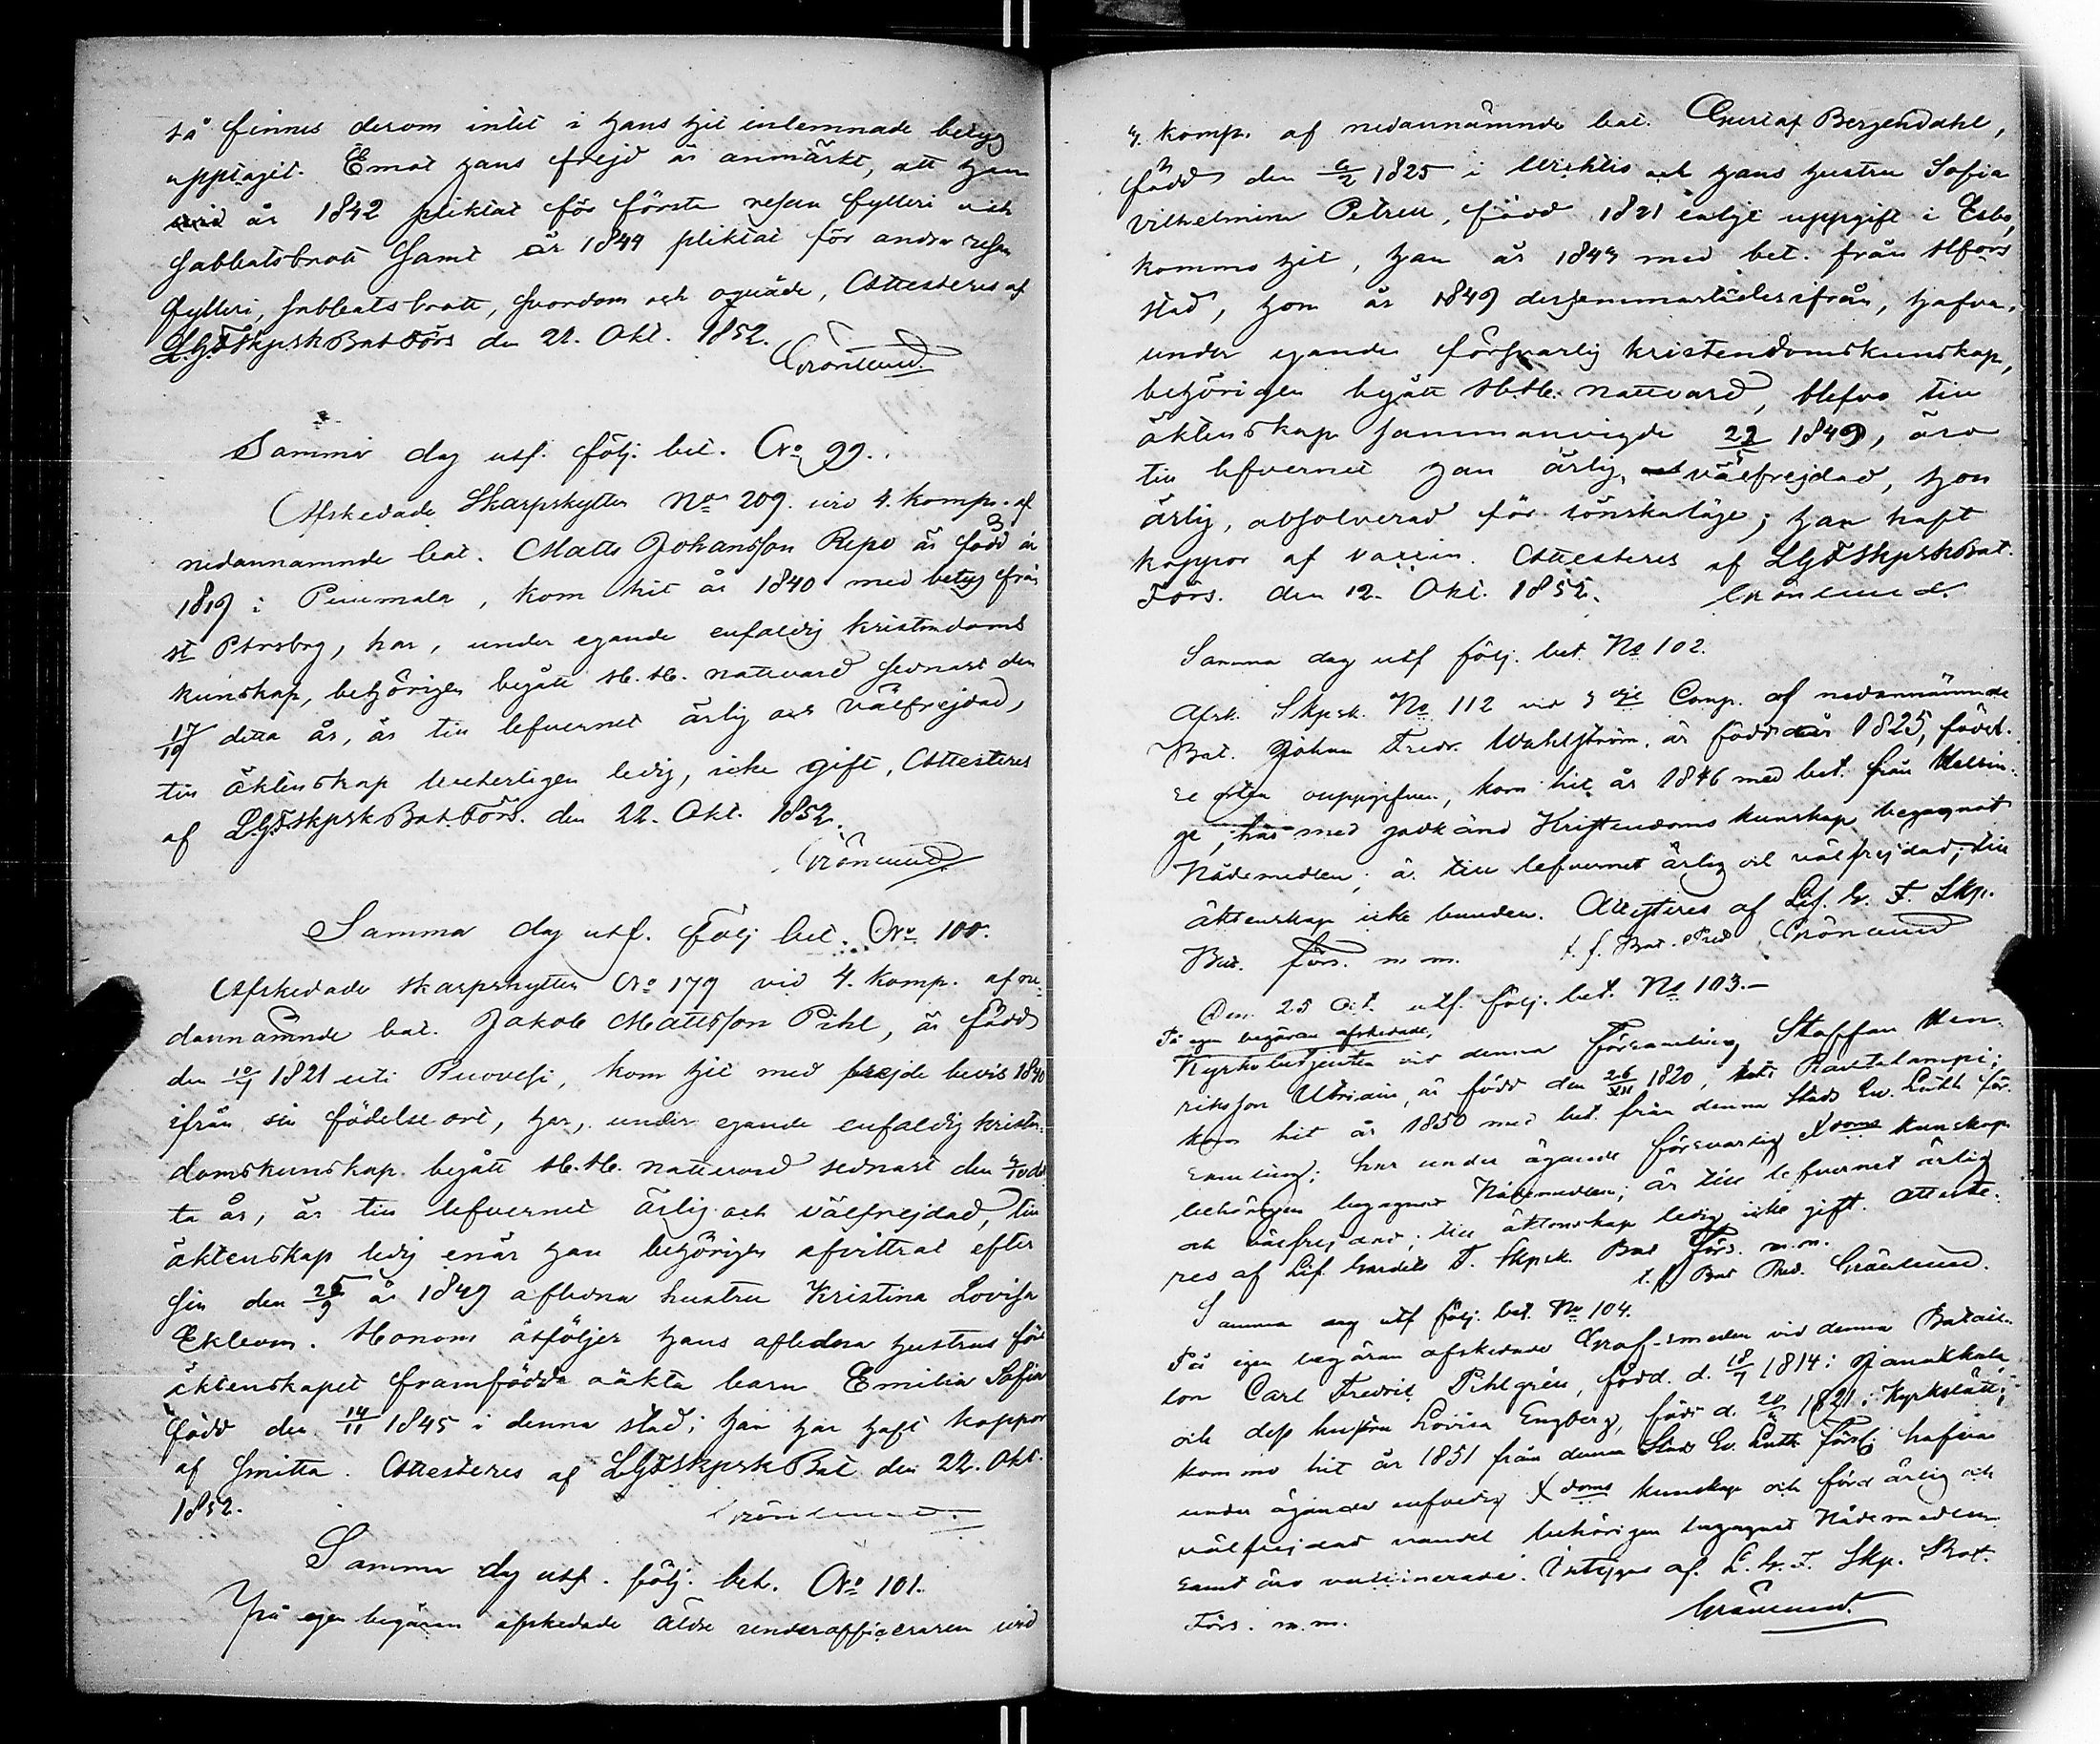 så finnes derom intet i hans hit inlemnade betyg
upptaget. Emot hans frejd är anmärkt, att han
år 1842 pliktat för första resan fylleri och
sabbatsbrott samt år 1844 pliktat för andra resan
fylleri, sabbatsbrott, svordom och oqväde, Attesteras af
LGFSkpskBatFörs den 22. Okt. 1852.
Grönlund.
Samma dag utf. följ. bet. No 99.
Afskedade Skarpskytten No 209. vid 4. komp. af
nedannämnde bat. Matts Johansson Repo är född år
1819 i Puumala, kom hit år 1840 med betyg från
St Ptrsbrg, har, under egande enfaldig kristendoms
kunskap, behörigen begått H.H. nattvard sednast den
17/10 detta år, är till lefvernet ärlig och välfrejdad,
till äktenskap veterligen ledig, icke gift, Attesteras
af LGFSkpskBat.Förs. den 22. Okt. 1852.
Grönlund
Samma dag utf. följ bet. No 100.
Afskedade skarpskytten No 179 vid 4. komp. af ne-
dannämnde bat. Jakob Mattsson Pihl, är född
den 10/1 1821 uti Ruovesi, kom hit med frejde bevis 1840
ifrån sin födelse ort, har, under egande enfaldig kristen-
domskunskap begått H.H. nattvard sednast den 4/10 det-
ta år, är till lefvernet ärlig och välfrejdad, till
äktenskap ledig enär han behörigen afvittrat efter
sin den 26/9 år 1849 aflidna hustru Kristina Lovisa
Eklevom. Honom åtföljer hans aflidna hustrus för
äktenskapet framfödda oäkta barn Emilia Sofia
född den 14/11 1845 i denna stad; han har haft koppor
af smitta. Attesteras af LGFSkpskBat den 22. Okt.
1852. Grönlund.
Samma dag utf. följ. bet. No 101.
På egen begäran afskedade äldre underofficeraren vid
4. komp. af nedannämnde bat. Gustaf Bergendahl,
född den 6/2 1825 i Wichtis och hans hustru Sofia
Vilhelmina Petrell, född 1821 enligt uppgift i Esbo,
kommo hit, han år 1844 med bet. från Hfors
stad, hon år 1849 dersammastädes ifrån, hafva,
under egande försvarlig kristendomskunskap,
behörigen begått H.H. nattvard, blefvo till
äktenskap sammanvigde 22/5 1849, äro
till lefvernet han ärlig, välfrejdad, hon
ärlig, absolverad för lönskaläge; han haft
koppor af vaccin. Attesteras af LGFSkpskBat.
Förs. den 12. Okt. 1852. Grönlund.
Samma dag utf följ. bet. No 102.
Afsk. Skpsk. No 112 vid 3 dje Comp. af nedannämnde
Bat. Johan Fredr. Wahlström, är född år 1825, födel-
se orten ouppgifven, kom hit år 1846 med bet. från Helsin-
ge, har med godkänd Kristendoms kunskap begagnat
Nådemedlen; är till lefvernet ärlig och välfrejdad; till
äktenskap icke bunden. Attesteras af Lif. G. F. Skp.
Bat. förs. m m. t. f. Bat. Pred Grönlund
Den 25 Oct. utf. följ. bet. No 103.—
På egen begäran afskedade,
Kyrkobetjenten vid denna Församling Staffan Hen-
riksson Utriain, är född den 26/XII 1820, uti Rautalampi;
kom hit år 1850 med bet. från denna Stads Ev. Luth för-
samling; har under ägande försvarlig Xdoms kunskap
behörigen begagnat Nådemedlen; är till lefvernet ärlig
och välfrejdad; till äktenskap ledig icke gift. Atteste-
res af Lif. Gardets F. Skpsk. Bat Förs. m. m.
t. f. Bat Pred. Grönlund.
Samma dag utf följ. bet. No 104.
På egen begäran afskedade Grof-smeden vid denna Batail-
lon Carl Fredric Pihlgrén, född. d. 18/7 1814 i Janakkala
och dess hustru Lovisa Engberg, född d. 20/ 1821 i Kyrkslätt;
kommo hit år 1851 från denna Stads Ev. Luth Förs; hafva
under ägande enfaldig X doms kunskap och förd ärlig och
välfrejdad vandel behörigen begagnat Nådemedlen
samt äro vaccinerade. Intygas af. L. G. F. Skp. Bat.
Förs. m. m. Grönlund.